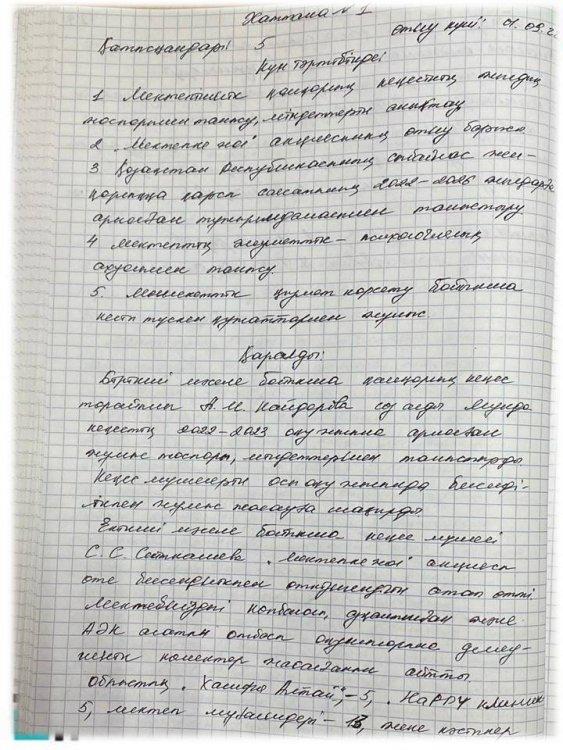 Хаттама №1
өткізу күні: 01.09.2
Қатысқандары: 5
Күн тәртібінде:
1 Мектепішілік қамқорлық кеңестің жылдық
жоспарымен танысу, міндеттерін анықтау
2 „Мектепке жол" акциясының өткізу барысы
3 Қазақстан Республикасының сыбайлас жем-
қорлыққа қарсы саясатының 2022-2026 жылдарға
арналған тұжырымдамасымен таныстыру
4 Мектептің әлеуметтік - психологиялық
ахуалымен танысу.
5. Мемлекеттік қызмет көрсету бойынша
келіп түскен құжаттармен жұмыс
Қаралды:
Бірінші мәселе бойынша қамқорлық кеңес
төрайымы А.М. Кайдарова сөз алды. Мұнда
кеңестің 2022-2023 оқу жылына арналған
жұмыс жоспары, міндеттерімен таныстырды.
Кеңес мүшелерін осы оқу жылында белсенді-
лікпен жұмыс жасауға шақырды.
Екінші мәселе бойынша кеңес мүшесі
С.С. „Мектепке жол акциясы
өте белсенділікпен өткізілгендігін атап өтті
Мектебіміздегі көпбалалы, және
АӘК алатын отбасы оқушыларына демеу-
шілік көмектер жасағанын айтты
Облыстық „Халифа Алтай"-5, „НаРОУ клиник
5, мектеп мұғалімдері - 13, және кәсіпкер